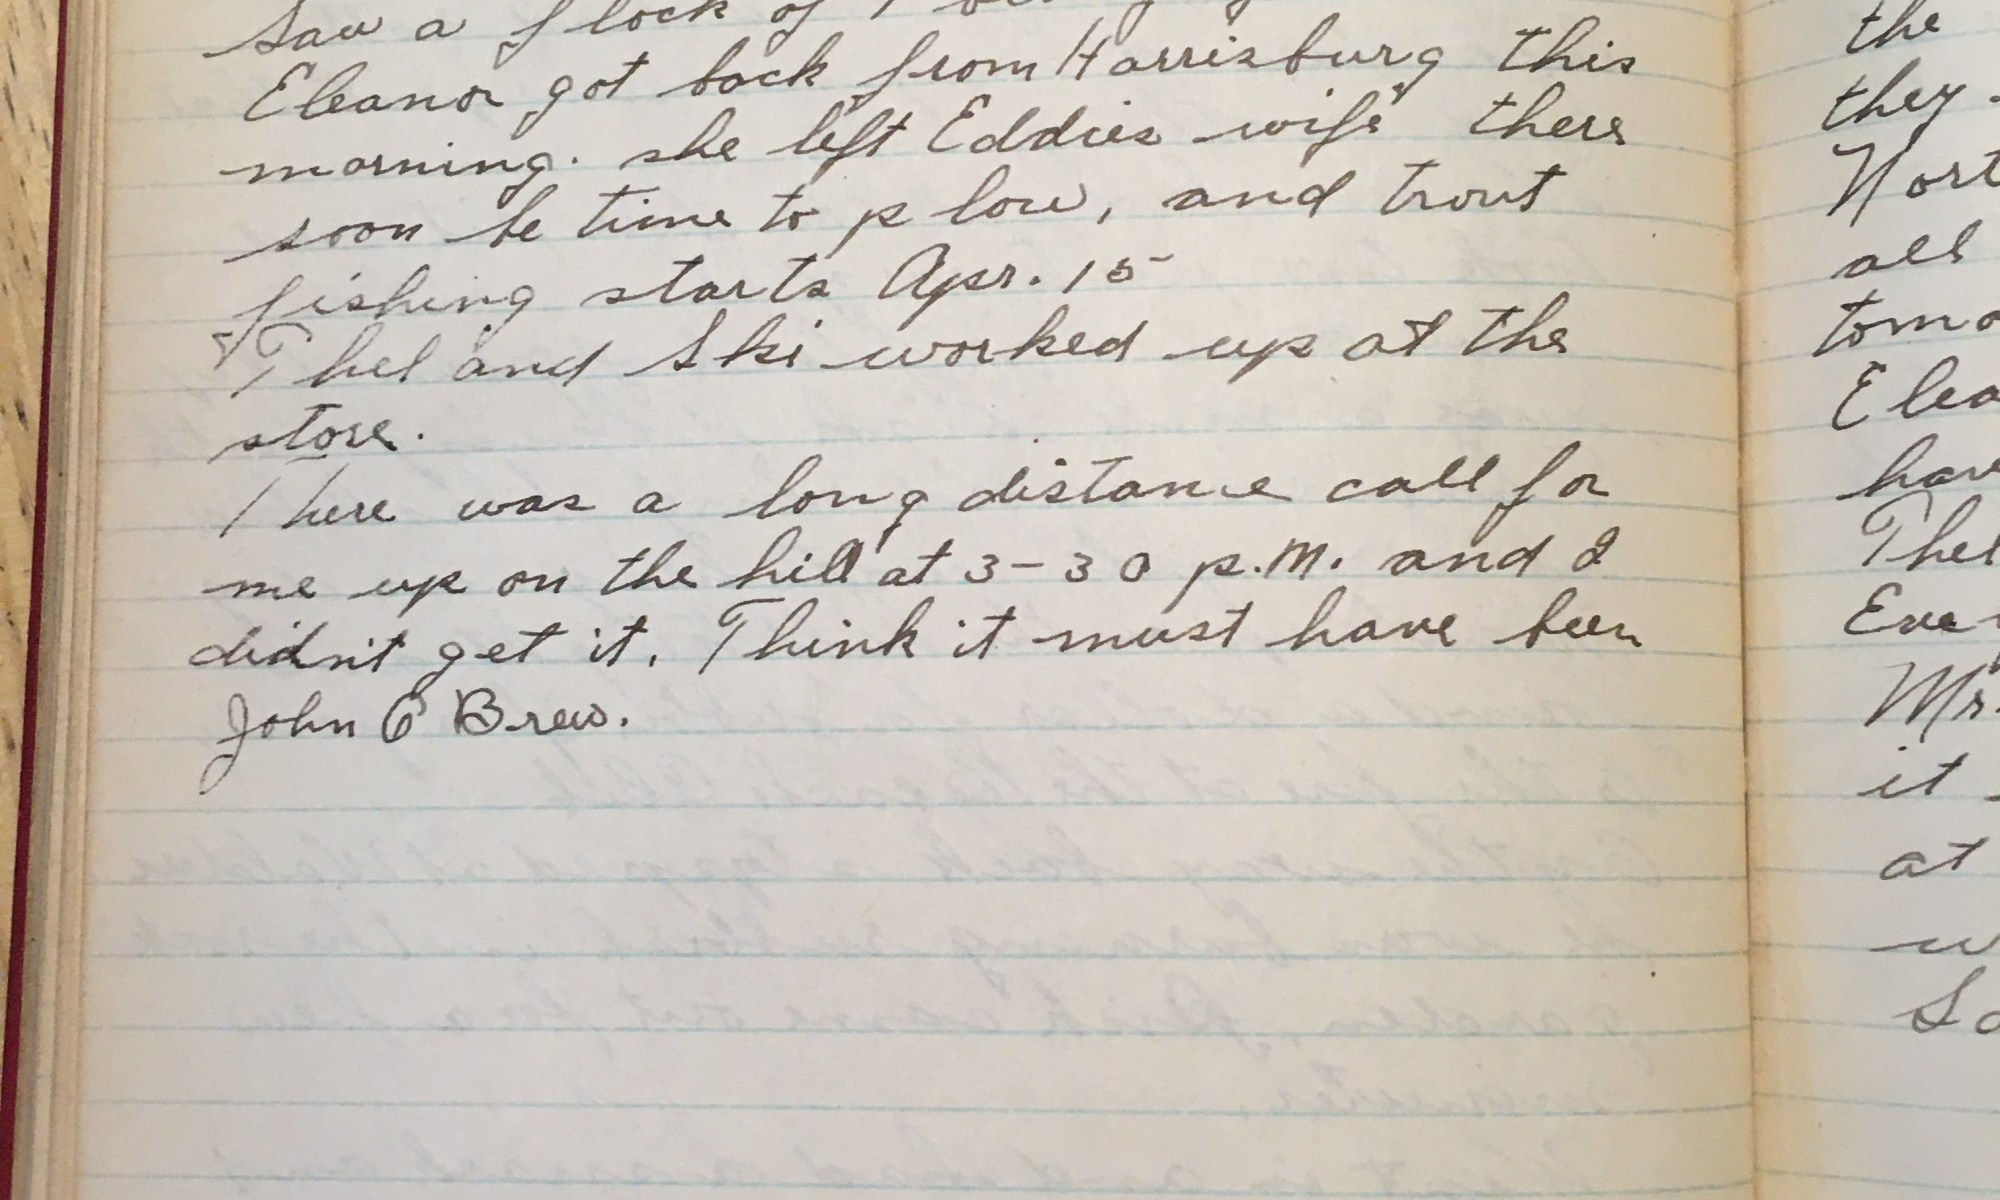 Saw a flock of
Eleanor got back from Harrisburg this
morning. she left Eddies wife there
soon be time to plow, and trout
fishing starts Apr. 15
Thel and Ski worked up at the
store.
There was a long distance call for
me up on the hill at 3-30 p.M. and I
didn't get it. Think it must have been
John C Brew.
the
they
all
have
Thel
Mr.
it
at